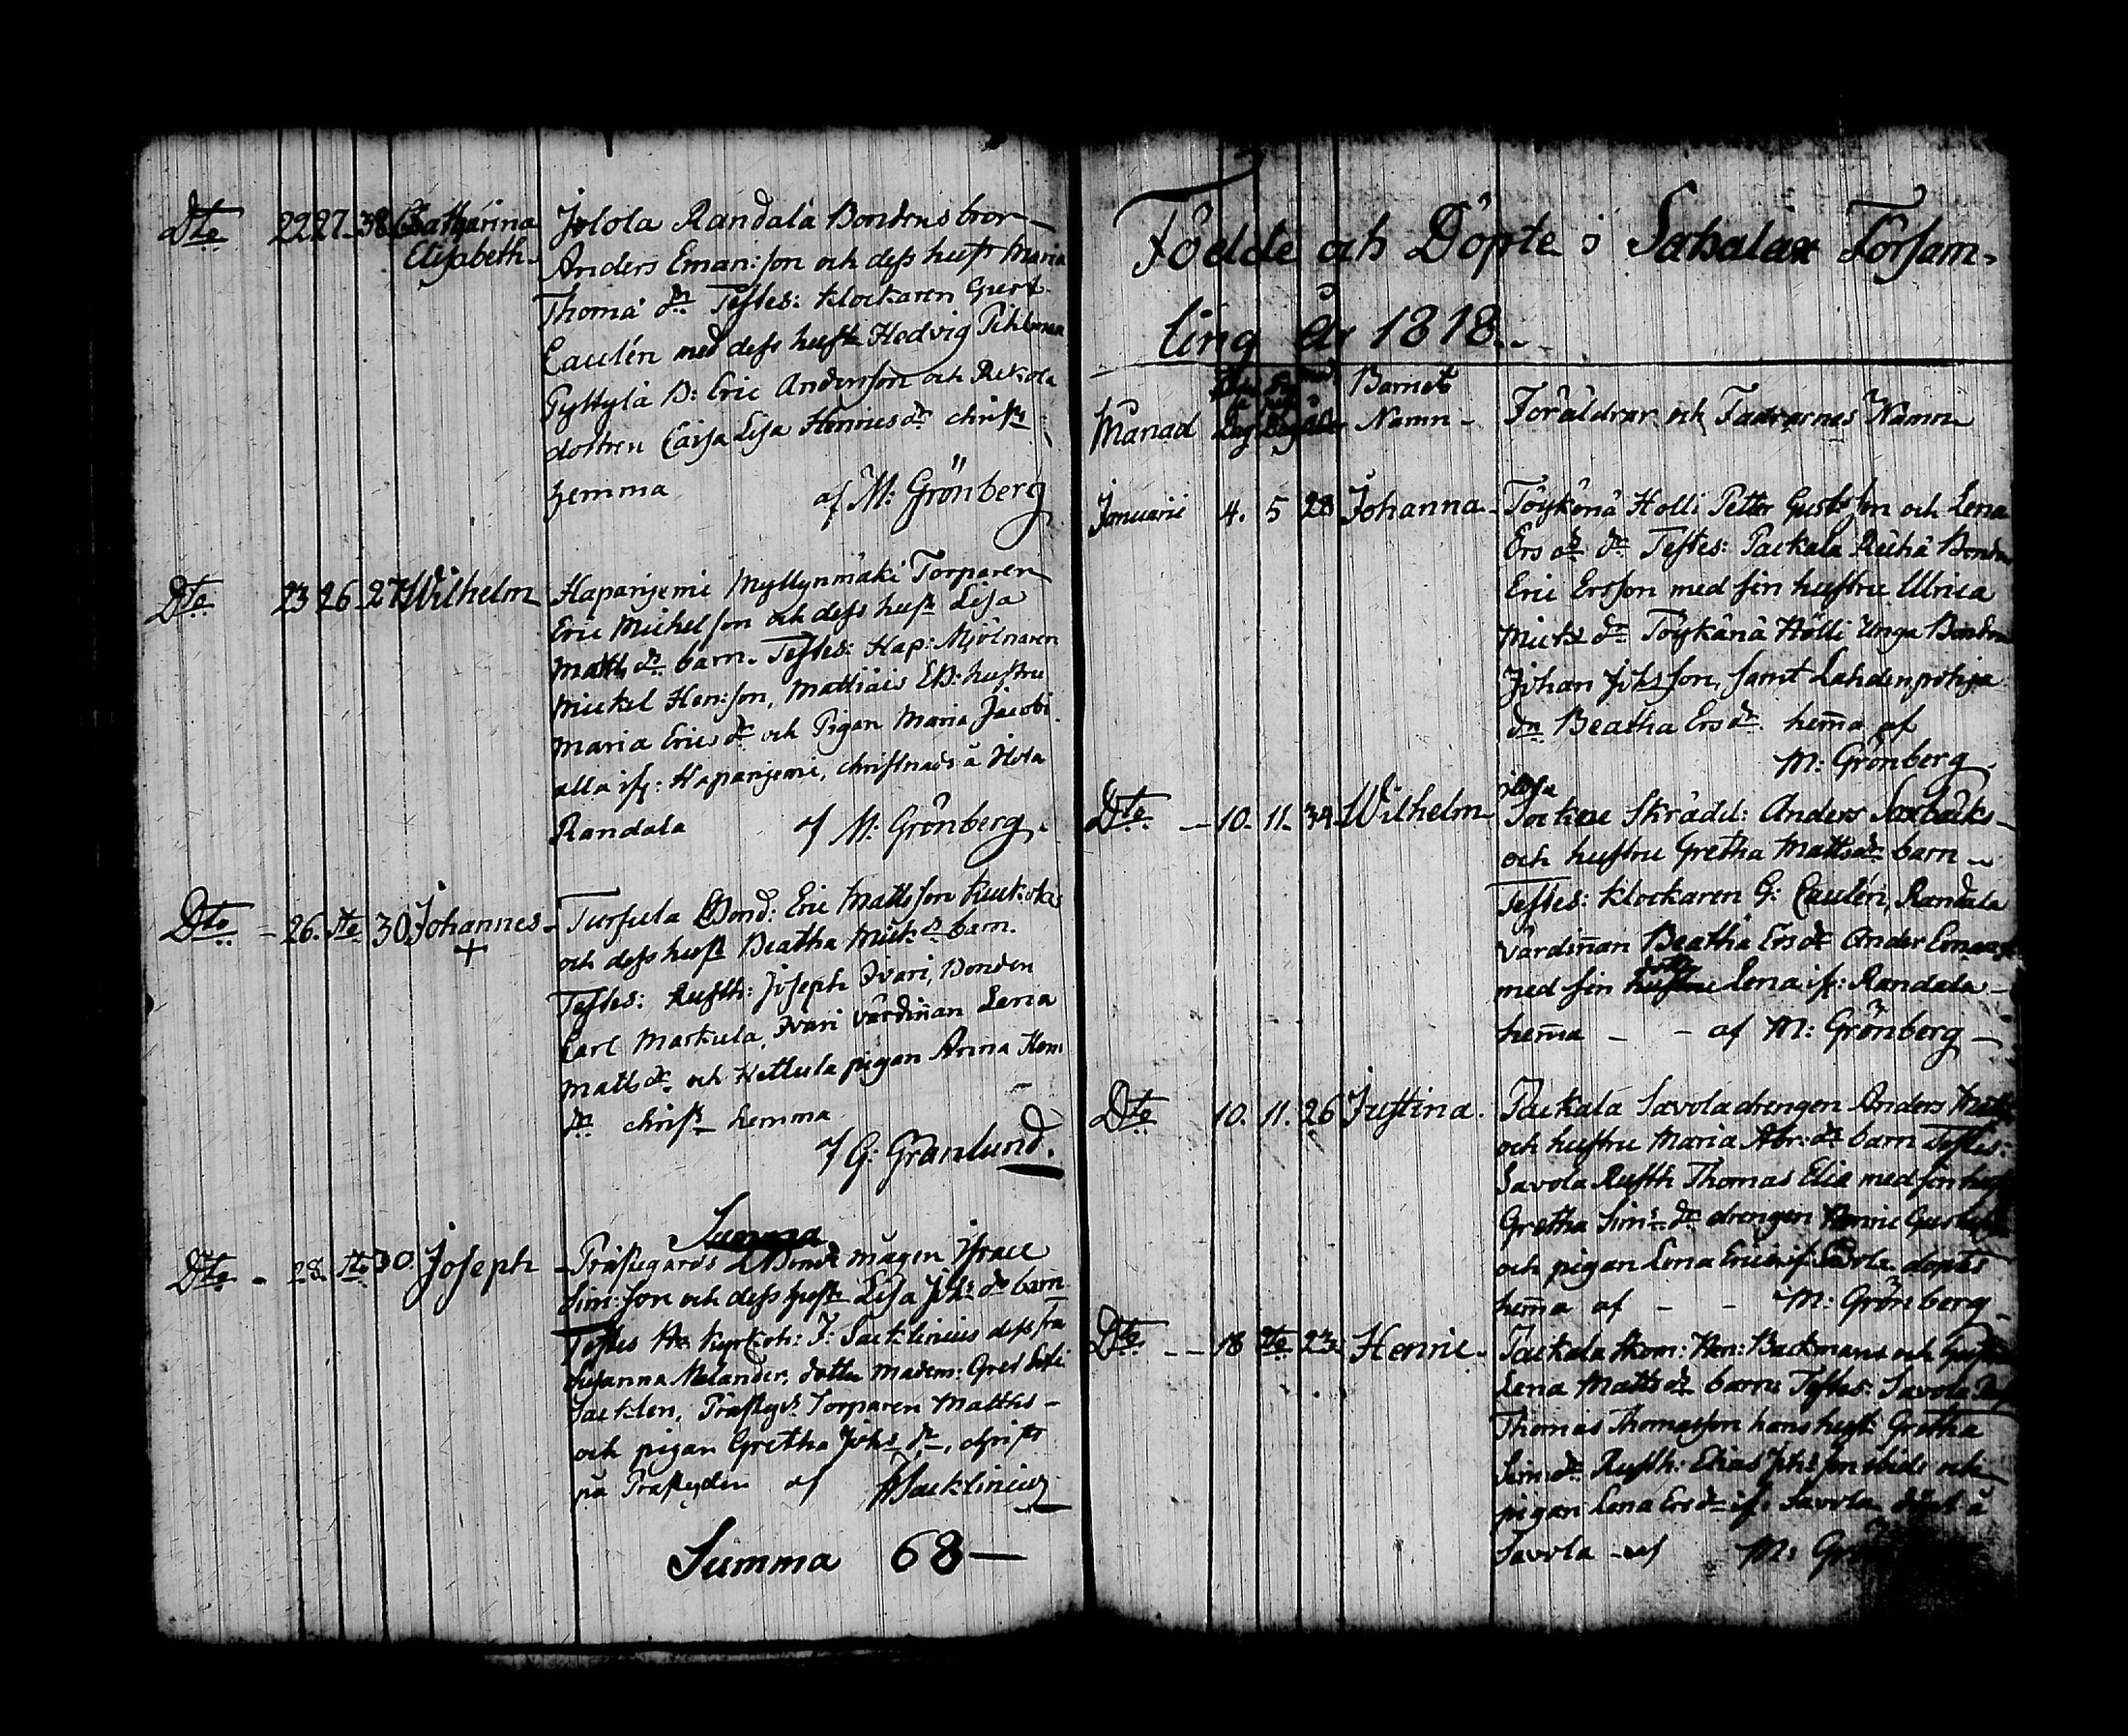 Dto 22 27 38 Catharina Jolola Randala Bondens bror
Elisabeth Anders Eman: son och dess hustr Maria
Thoma dr Testes: klockaren Gust
Caulén med dess hustr Hedvig Pihlman
Pyttylä B: Eric Andersson och Rekola
dottren Caisa Lisa Henricsdr christs
hemma af M: Grönberg
Dto 23 26 27 Wilhelm Hapanjemi Myllynmäki Torparen
Eric Michelson och dess hustr Lisa
Matts dr barn. Testes: Hap: Mjölnaren
Mickel Henr: son, Mattiais EB: hustru
Maria Erics dr och Pigan Maria Jacobi
alla ifr: Hapanjemi, christnads å Jlola
Randala af M: Grönberg
Dto 26. dto 30 Johannes Tursula Bond: Eric Mattsson Kuckolas
+ och dess hustr Beatha Mick dr barn.
Testes: Rusth: Joseph Jvari, Bonden
Carl Markula, Jvari värdinnan Lena
Matts dr och Hettula pigan Anna Hen
dr christs hemma
af G: Granlund.
Summa
Dto 28. dto 30. Joseph Prästegårds Bonde mågen Israel
Sim: son och dess hustr Lisa Joh: dr barn
Testes Hr Kyrkoh: J: Sacklinius dess fru
Susanna Melander, dotter Madem: Gret Sofi
Sacklen, Prästgds Torparen Matths
och pigan Gretha Johs dr, christs
på Prästegden af JSacklinius
Summa 68
Födde och Döpte i Sahalax Försam-
ling år 1818.
Månad Dag Dag Barnets Namn Föräldrar och Faddrarnes Namn
Januarii 4. 5 28 Johanna Töykänä Holli Petter Gusts son och Lena
Ers dr Testes: Packala Reihä Bonden
Eric Ersson med sin hustru Ulrica
Micks dr Töykänä Hölli Unga Bonden
Johan Johsson, samt Lahdenpohja
dn Beatha Ers dr hemma af
M: Grönberg
Dto 10. 11. 34 Wilhelm Skrädd: Anders Saxbäcks
och hustru Gretha Mattsdr barn
Testes: klockaren G: Caulén, Randala
värdinnan Beatha Ersdr Ander
med sin hustru dotter Lena ifr: Randala
hemma af M: Grönberg
Dto 10. 11. 26 Justina. Packala Savola drengen Anders Matts
och hustru Maria Abr: dr barn Testes:
Savola Rusth Thomas Elia med sin hust
Gretha Sims dr drengen Henric
och pigan Lena Erics ifr Savola doptes
hemma af M: Grönberg
Dto 18 dto 23 Henric. Packala Henr: Backmans och
Lena Matts dr barn Testes: Savola
Thomas Thomasson hans hustr Gretha
Sim dr Rusth: Elias Johs son ibid: och
pigan Lena Ers dr ifr Savola döpt å
Savola af M: